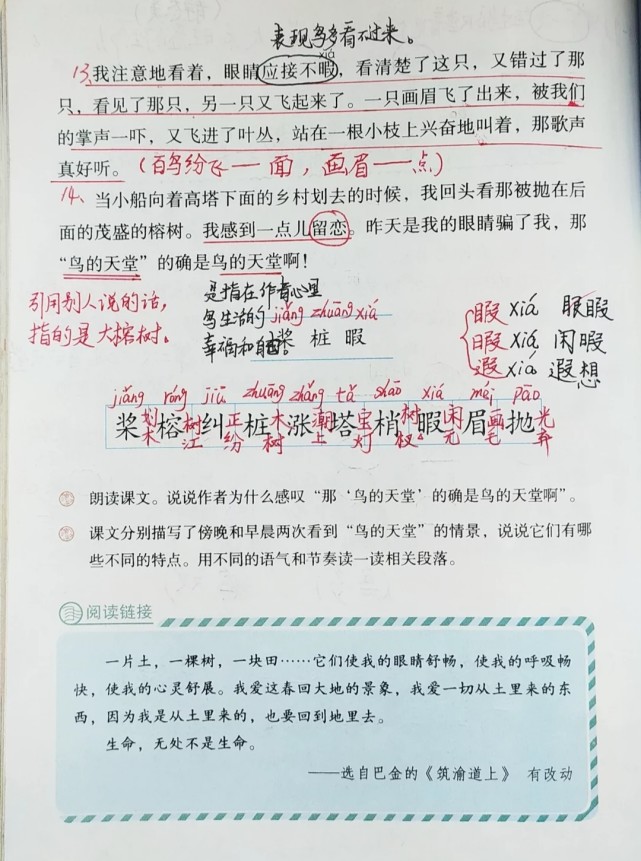 表现鸟多看不过来。
xiá
13、我注意地看着，眼睛应接不暇，看清楚了这只，又错过了那
只，看见了那只，另一只又飞起来了。一只画眉飞了出来，被我们
的掌声一吓，又飞进了叶丛，站在一根小枝上兴奋地叫着，那歌声
真好听。（百鸟纷飞——面，画眉——点）
14、当小船向着高塔下面的乡村划去的时候，我回头看那被抛在后
面的茂盛的榕树。我感到一点儿留恋。昨天是我的眼睛骗了我，那
“鸟的天堂”的确是鸟的天堂啊！
引用别人说的话，
指的是大榕树。
是指在作者心里
鸟生活的
幸福和自由。
jiǎng zhuāng xiá
桨 桩 暇
暇 xiá 暇
暇 xiá 闲暇
遐 xiá 遐想
jiǎng róng jiū zhuāng zhǎng tǎ shāo xiá méi pāo
桨 榕 纠 桩 涨 塔 梢 暇 眉 抛
划木 树江 正纷 木树 潮上 宝灯 树权 闲元 画毛 光弃
朗读课文。说说作者为什么感叹“那‘鸟的天堂’的确是鸟的天堂啊”。
课文分别描写了傍晚和早晨两次看到“鸟的天堂”的情景，说说它们有哪
些不同的特点。用不同的语气和节奏读一读相关段落。
阅读链接
一片土，一棵树，一块田……它们使我的眼睛舒畅，使我的呼吸畅
快，使我的心灵舒展。我爱这春回大地的景象，我爱一切从土里来的东
西，因为我是从土里来的，也要回到地里去。
生命，无处不是生命。
——选自巴金的《筑渝道上》 有改动